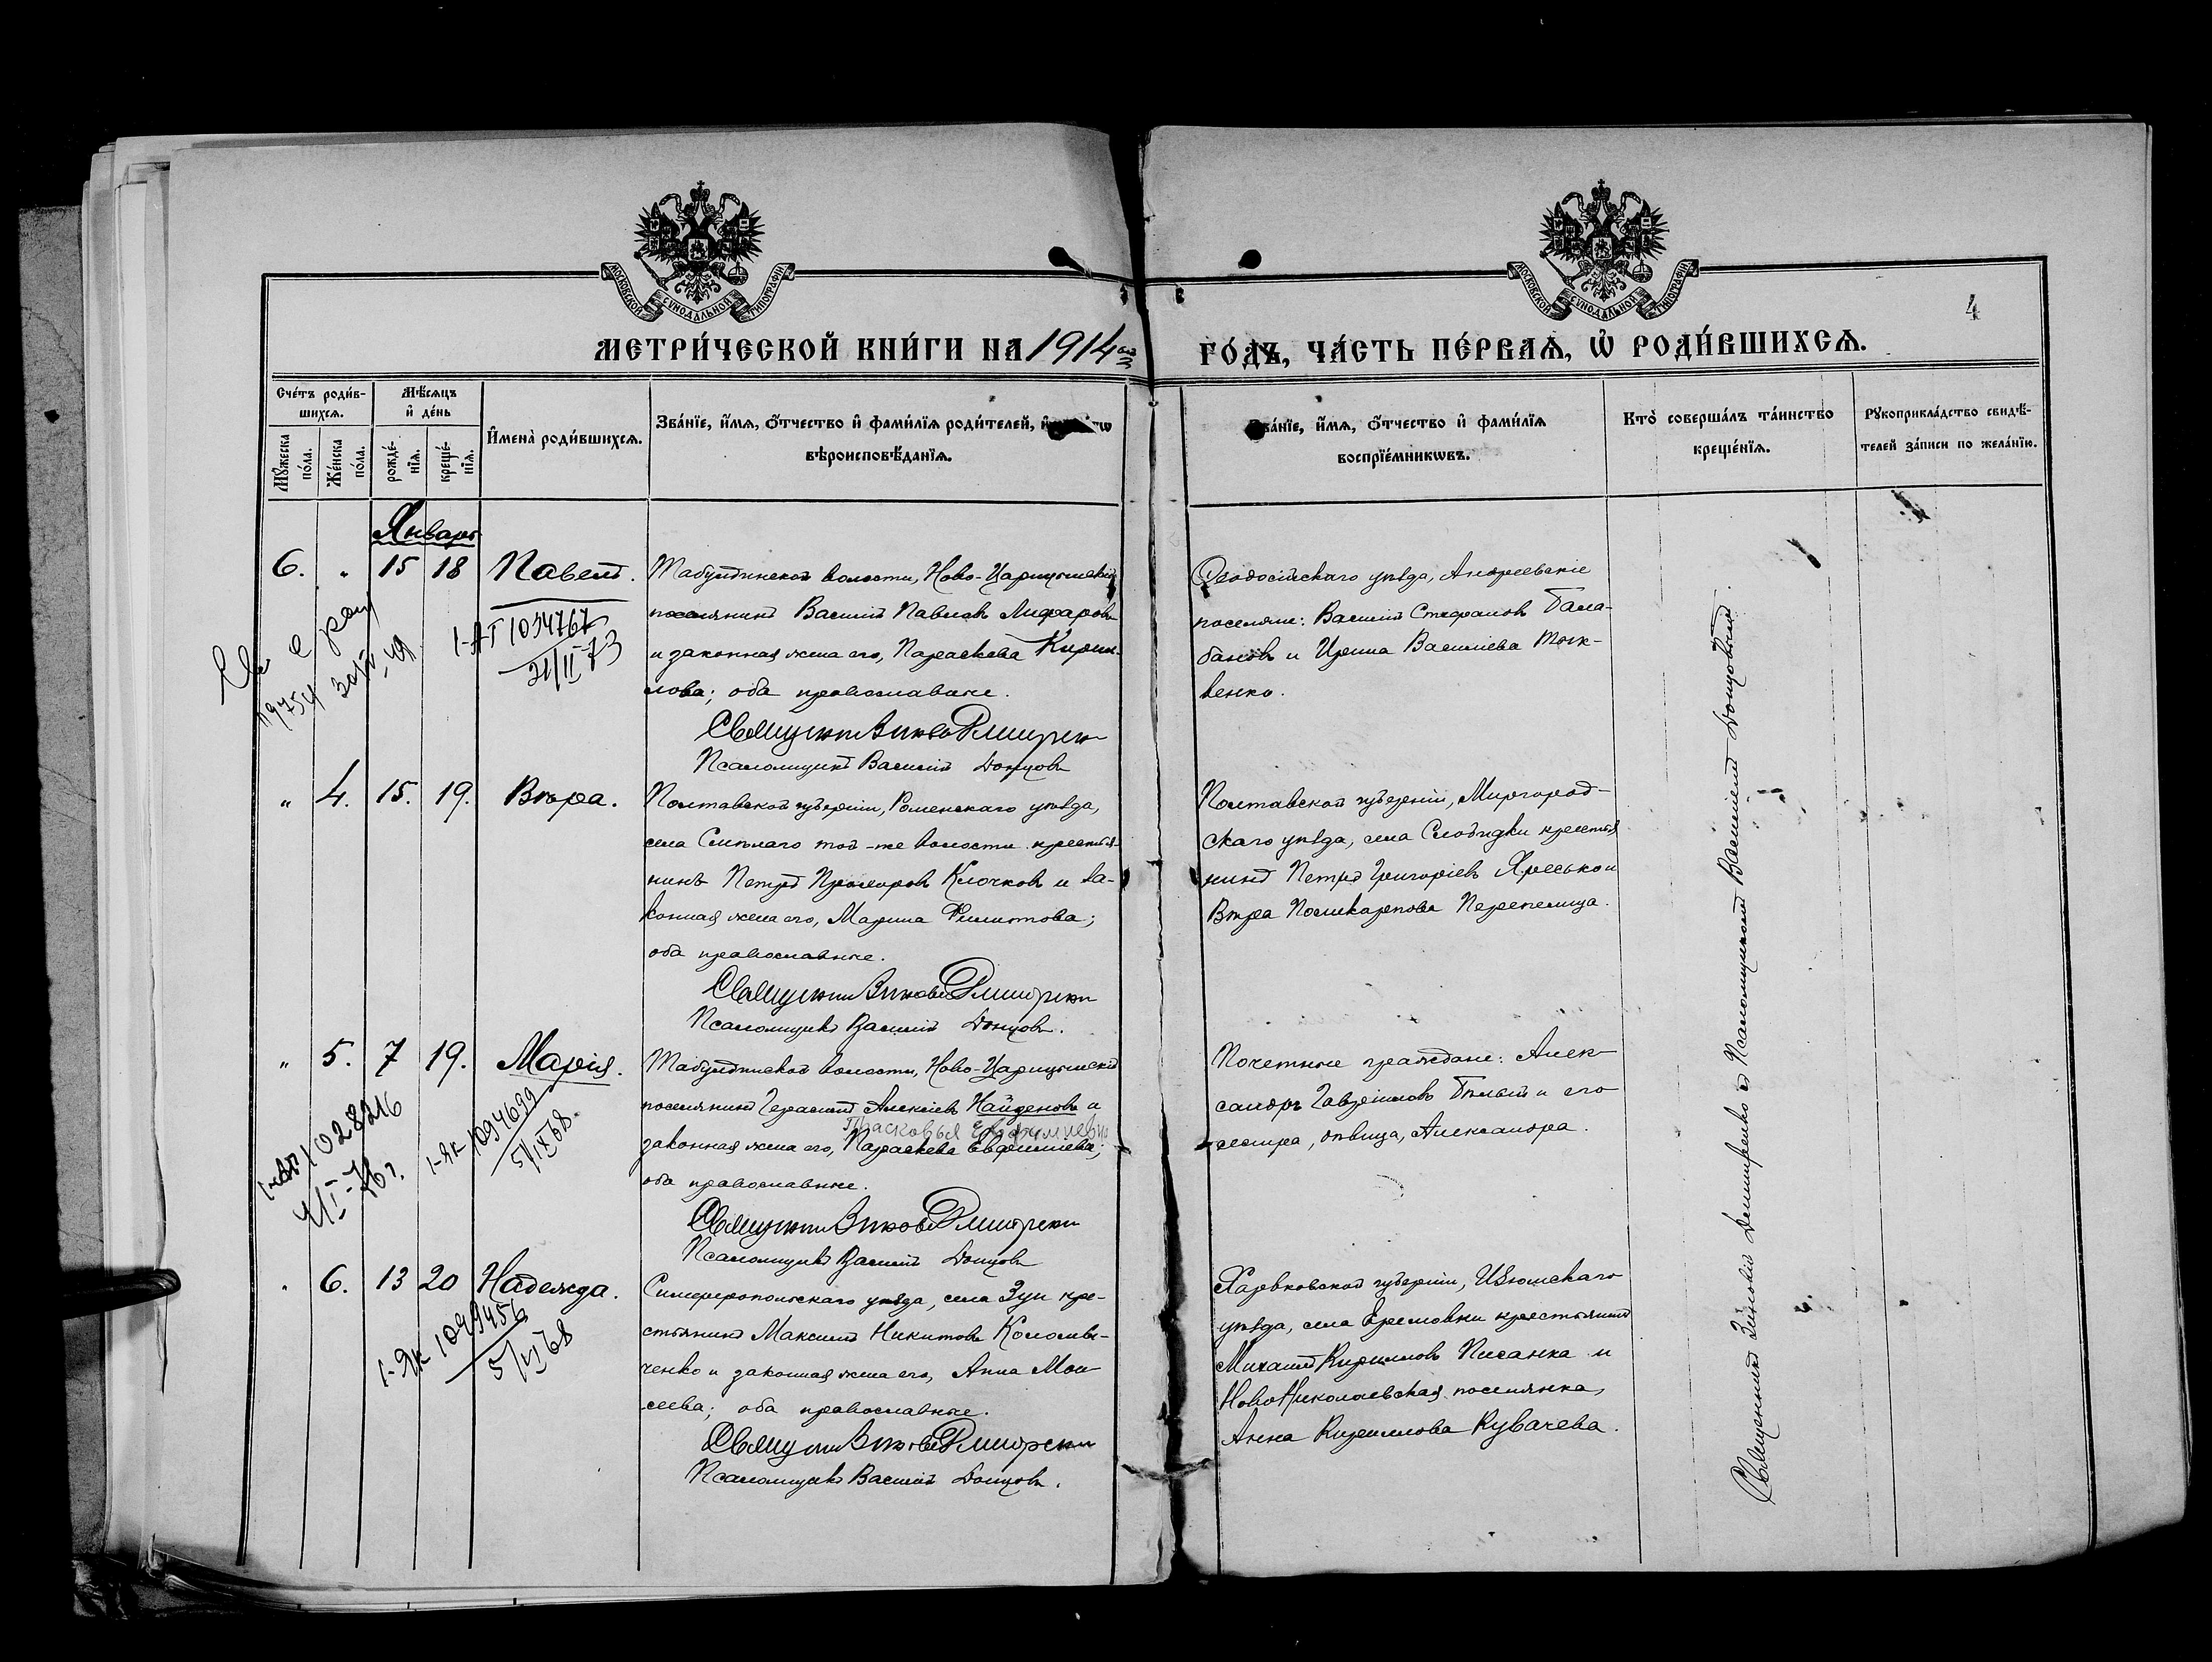 МОСКОВСКОЙ СѴНОДАЛЬНОЙ ТИПОГРАФІИ
МОСКОВСКОЙ СѴНОДАЛЬНОЙ ТИПОГРАФІИ
4
МЕТРИ́ЧЕСКОЙ КНИ́ГИ НА 1914 ГО́ДЪ, ЧА́СТЬ ПЕ́РВАѦ, Ѡ҆ РОДИ́ВШИХСѦ.
Сче́тъ роди́в-
шихсѧ.
Мꙋ́жеска
по́ла.
Же́нска
по́ла.
Мѣ́сѧцъ
и҆ де́нь
рожде́-
нїѧ.
креще́-
нїѧ.
И҆мена̀ роди́вшихсѧ.
Зва́нїе, и҆́мѧ, ѻ҆́тчество и҆ фами́лїѧ роди́телей, и҆
вѣроисповѣ́данїѧ.
Зва́нїе, и҆́мѧ, ѻ҆́тчество и҆ фами́лїѧ
воспрїе́мникѡвъ.
Кто̀ соверша́лъ та́инство
креще́нїѧ.
Рꙋкоприкла́дство свидѣ́-
телей за́писи по жела́нїю.
Январь
6. " 15 18 Павелъ.
Табулдинской волости, Ново-Царицынскій
поселянинъ Василій Павловъ
и законная жена его, Параскева Кирил-
лова; оба православные.
Священникъ Зиновій Демитренко
Псаломщикъ Василій Донцовъ
Ѳеодосійскаго уѣзда, Андреевскіе
поселяне: Василій Стефановъ Бала-
бановъ и Ирина Васильева
венко.
1-АГ 1034767
21/II-73
" 4. 15. 19. Вѣра.
Полтавской губерніи, Роменскаго уѣзда,
села Смѣлаго той-же волости крестья-
нинъ Петръ Прохоровъ Клочковъ и за-
конная жена его, Марина Филиппова;
оба православные.
Священникъ Зиновій Демитренко
Псаломщикъ Василій Донцовъ.
Полтавской губерніи, Миргород-
скаго уѣзда, села Слободки крестья
нинъ Петръ Григоріевъ Яресько и
Вѣра Поликарпова Перепелица.
" 5. 7 19. Марія.
Табулдинской волости, Ново-Царицынскій
поселянинъ Герасимъ Алексіевъ Найденовъ и
Прасковья Евфимиевна
законная жена его, Параскева Евфиміева;
оба православные.
Священникъ Зиновій Демитренко
Псаломщикъ Василій Донцовъ
Почетные граждане: Алек-
сандръ Гавріиловъ Бѣлый и его
сестра, дѣвица, Александра.
1028216
1-ЯК 1094699
5/IX68.
" 6. 13 20 Надежда.
Симферопольскаго уѣзда, села Зуи кре-
стьянинъ Максимъ Никитовъ Коломій-
ченко и законная жена его, Анна Мои
сеева; оба православные.
Священникъ Зиновій Демитренко
Псаломщикъ Василій Донцовъ.
Харьковской губерніи, Изюмскаго
уѣзда, села Еремовки крестьянинъ
Михаилъ Кирилловъ Писанка и
Ново Николаевская поселянка,
Анна Кириллова Кувачева.
1-ЯК 1099456
5/VI68
Священникъ Зиновій Демитренко съ Псаломщикомъ Василіемъ Донцовымъ.